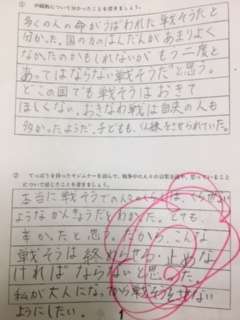 多くの人の命がうばわれた戦そうだと
分かった。国の方のはんだんがあまりよく
なかったのかもしれないが、もう二度と
あってはならない戦そうだと思う。
どこの国でも戦そうはおきて
ほしくない。おきなわ戦は自由の人も
多かったようだ。子どもも、仏練をさせられていた。
② てっぽうを持ったキジムナーを読んで、戦争中の人々の
について感じたことを書きましょう。
本当に戦そうでの
ようなかんきょうだとわかった。とても、
辛かったと思う。だから、こんな
戦そうは終わらせる・止めな
ければならないと思った。
私が大人になったら戦そうをさせない
ようにしたい。